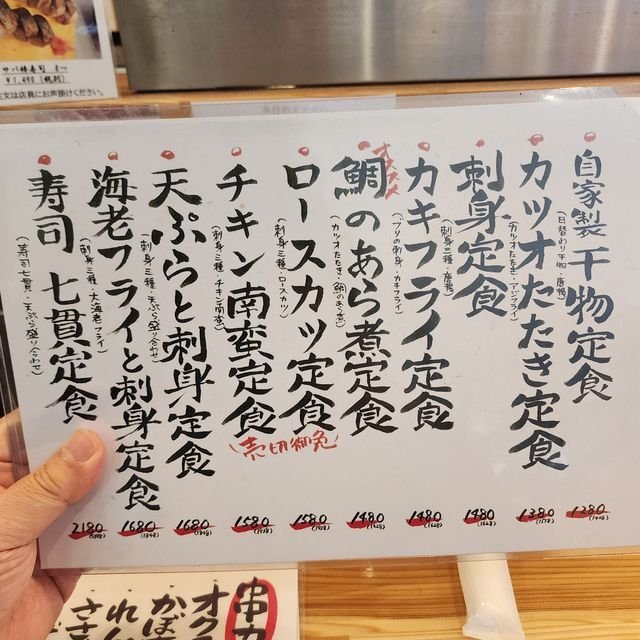 サバ棒寿司 1つ
¥1,490（税別）
注文は店員にお声掛けください
自家製 干物定食
(日替わり干物・唐揚)
1280
カツオたたき定食
(カツオたたき・アジフライ)
1380
刺身定食
(刺身三種・唐揚)
1480
(1628)
カキフライ定食
(ブリの刺身・カキフライ)
1480
(1628)
オススメ
鯛のあら煮定食
(カツオたたき・鯛のあら煮)
1480
(1628)
ロースカツ定食
(刺身三種・ロースカツ)
1580
チキン南蛮定食
(刺身三種・チキン南蛮)
1580
売切御免
天ぷらと刺身定食
(刺身三種・天ぷら盛り合わせ)
1680
(1848)
海老フライと刺身定食
(刺身三種・大海老フライ)
1680
(1848)
寿司 七貫定食
(寿司七貫・天ぷら盛り合わせ)
2180
串カ
オクラ
かぼ
れん
ささ